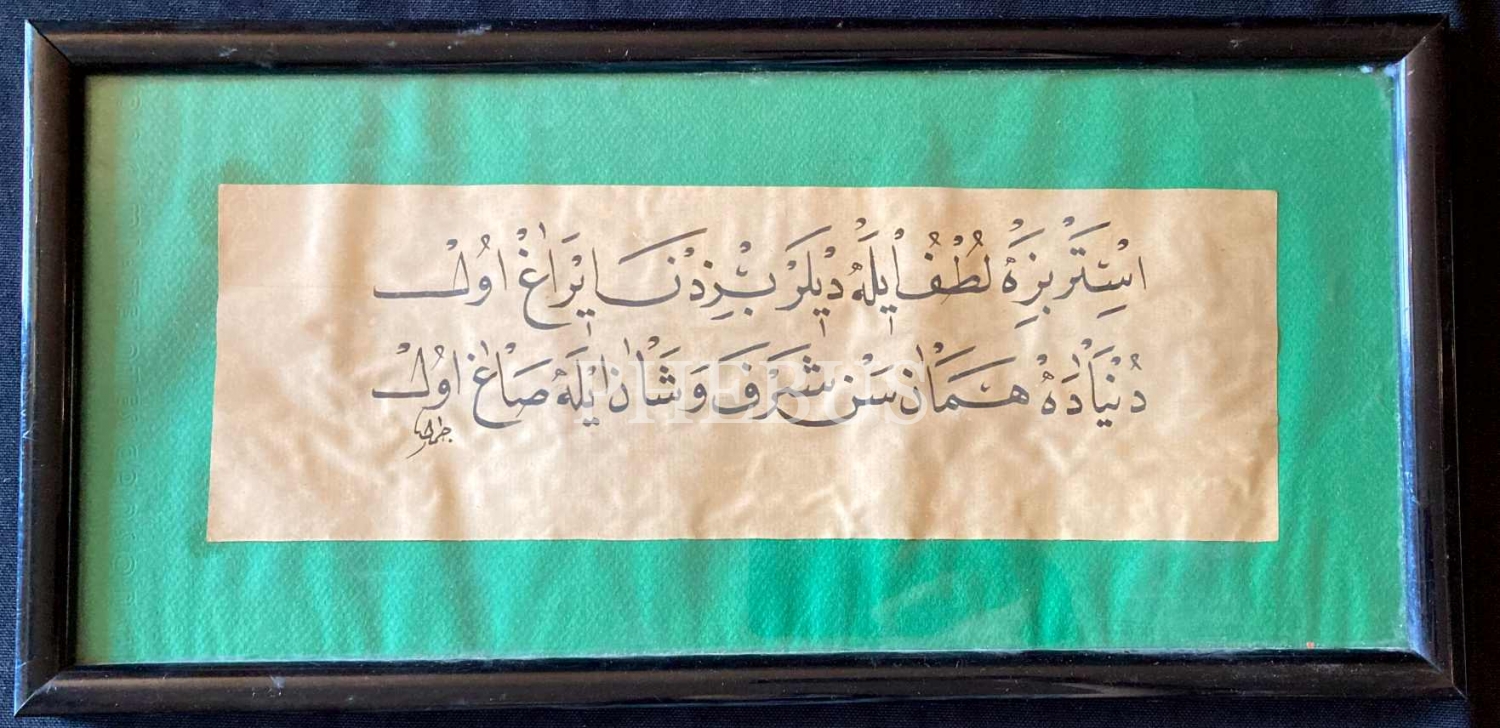 استر بزه لطف ايله ديلر بزدن ايراغ اول
دنياده همان سن شرف و شان ايله صاغ اول
PHEBUS